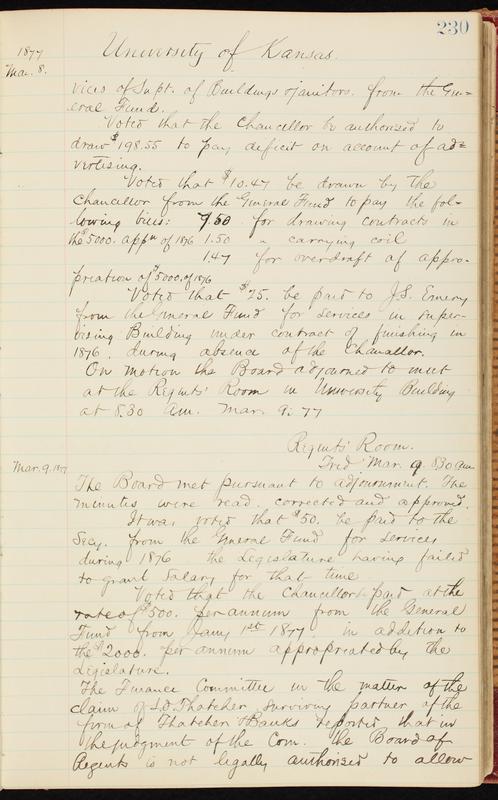 230
1877
Mar. 8.
University of Kansas.
vices of Supt. of Buildings & janitors. from the Gen=
eral Fund.
Voted that the Chancellor be authorized to
draw $198.55 to pay deficit on account of ad=
vertising.
Voted that $10.47 be drawn by the
Chancellor from the General Fund to pay the fol-
lowing bills: 7.50 for drawing contracts in
the $5000. appn of 1876 1.50 " carrying coil
1.47 for overdraft of appro-
priation of $5000. of 1876
Voted that $25. be paid to J.S. Emery
from the General Fund for services in super-
vising Building under contract of finishing in
1876, during absence of the Chancellor.
On motion the Board adjourned to meet
at the Regents' Room in University Building
at 8.30 am. Mar. 9. 77
Regents' Room.
Frid. Mar. 9. 8.30 am
Mar. 9. 1877
The Board met pursuant to adjournment. The
minutes were read, corrected and approved.
It was voted that $50. be paid to the
Secy. from the General Fund for services
during 1876 the Legislature having failed
to grant salary for that time
Voted that the Chancellor be paid at the
rate of $500. per annum from the General
Fund from Jany 1st 1877. in addition to
the $2000. per annum appropriated by the
Legislature.
The Finance Committee in the matter of the
claim of S.O. Thatcher surviving partner of the
firm of Thatcher & Banks reported that in
the judgment of the Com. the Board of
Regents is not legally authorized to allow